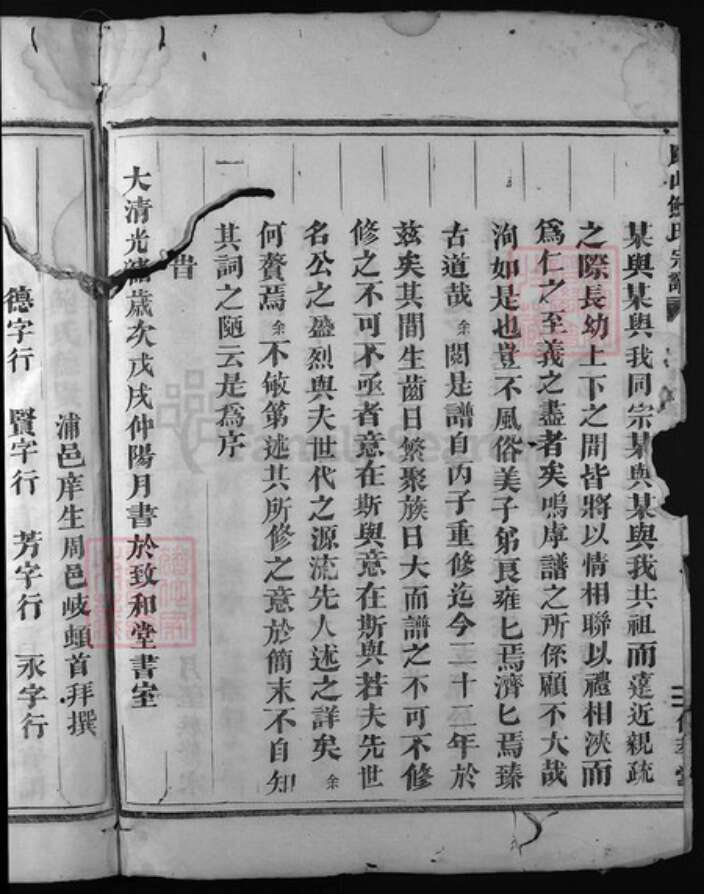 某與某與我同宗某與某與我共祖而遠近親疏
之際長幼上下之間皆將以情相聯以禮相浹而
爲仁之至義之盡者矣嗚虖譜之所係顧不大哉
洵如是也豈不風俗美子弟良雍匕焉濟匕焉臻
古道哉余閱是譜自丙子重修迄今二十二年於
茲矣其間生齒日繁聚族日大而譜之不可不修
修之不可不亟者意在斯與意在斯與若夫先世
名公之盛烈與夫世代之源流先人述之詳矣余
何贅焉余不敏第述其所修之意於簡末不自知
其詞之陋云是爲序
旹
大清光緒歲次戊戌仲陽月書於致和堂書室
浦邑庠生周邑岐頓首拜撰
德字行 賢字行 芳字行 永字行